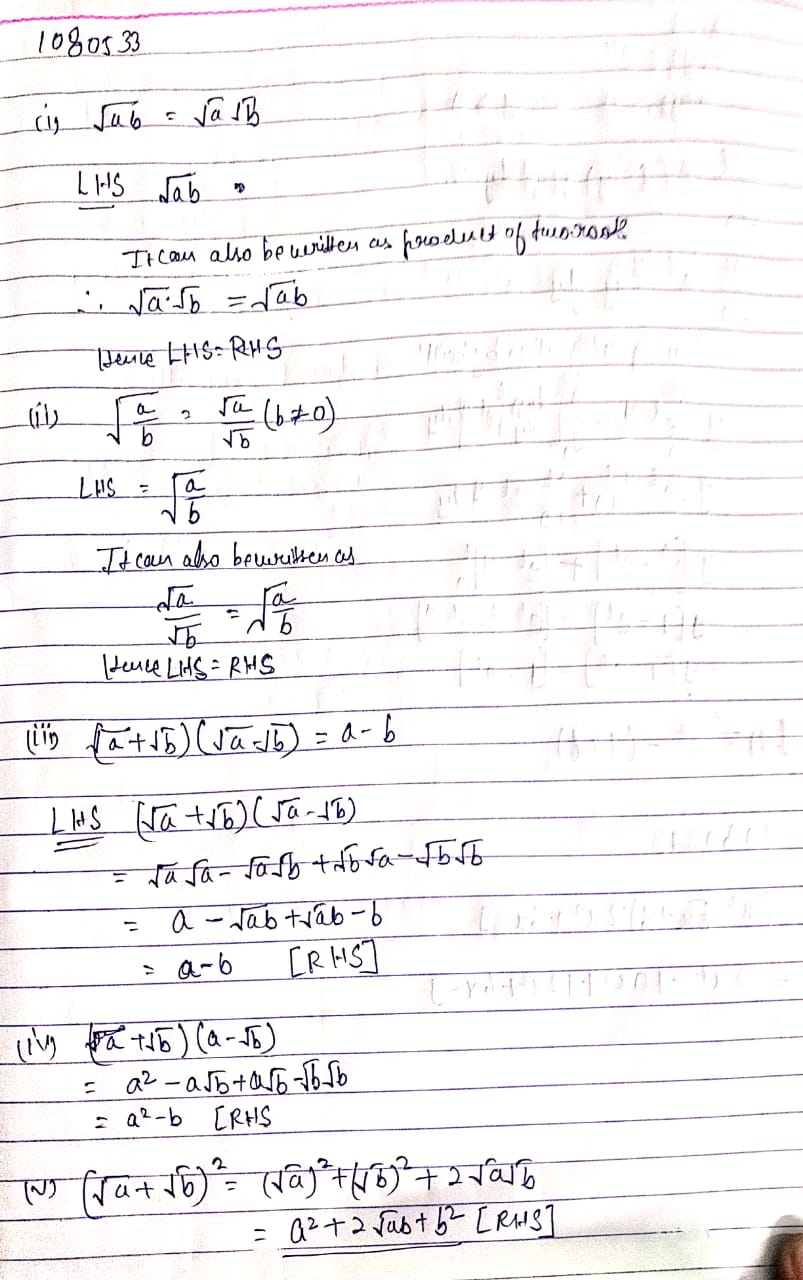 1080533
(i) √ab = √a √b
LHS √ab
It can also be written as product of two root
∴ √a·√b = √ab
Hence LHS = RHS
(ii) √(a/b) = √a/√b (b≠0)
LHS = √(a/b)
It can also be written as
√a/√b = √(a/b)
Hence LHS = RHS
(iii) (√a+√b)(√a-√b) = a-b
LHS (√a+√b)(√a-√b)
= √a √a - √a√b + √b √a - √b√b
= a - √ab + √ab - b
= a-b [RHS]
(iv) (a+√b)(a-√b)
= a² - a√b + a√b - √b√b
= a²-b [RHS
(v) (√a+√b)² = (√a)² + (√b)² + 2√a√b
= a² + 2√ab + b² [RHS]